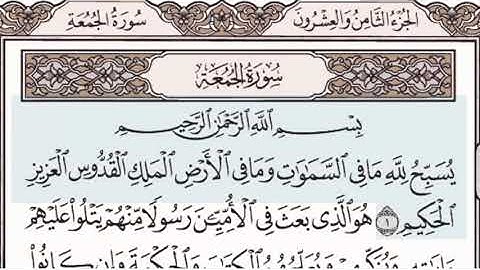 سُورَةُ الجُمُعَةِ الجُزْءُ الثَّامِنُ وَالعِشْرُونَ
سُورَةُ الجُمُعَةِ
بِسْمِ اللَّهِ الرَّحْمَٰنِ الرَّحِيمِ
يُسَبِّحُ لِلَّهِ مَا فِي السَّمَاوَاتِ وَمَا فِي الْأَرْضِ الْمَلِكِ الْقُدُّوسِ الْعَزِيزِ
الْحَكِيمِ ١ هُوَ الَّذِي بَعَثَ فِي الْأُمِّيِّينَ رَسُولًا مِنْهُمْ يَتْلُوا عَلَيْهِمْ